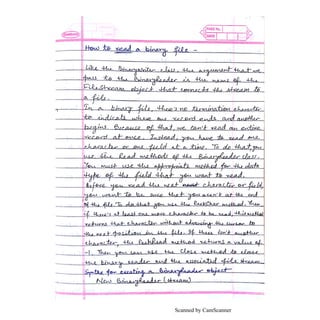 PAGE No.
DATE
How to read a binary file -
Like the BinaryWriter class, the argument that we
pass to the BinaryReader is the name of the
FileStream object that connects the stream to
a file.
In a binary file, there's no termination character
to indicate where one record ends and another
begins. Because of that, we can't read an entire
record at once. Instead, you have to read one
character or one field at a time. To do that you
use the Read methods of the BinaryReader class.
You must use the appropriate method for the data
type of the field that you want to read.
Before you read the next character or field,
you want to be sure that you aren't at the end
of the file. To do that you use the PeekChar method. Then
if there's at least one more character to be read, this method
returns that character without advancing the cursor to
the next position in the file. If there isn't another
character, the PeekChar method returns a value of
-1. Then you can use the Close method to close
the binary reader and the associated file stream
Syntax for creating a BinaryReader object
New BinaryReader (stream)
Scanned by CamScanner